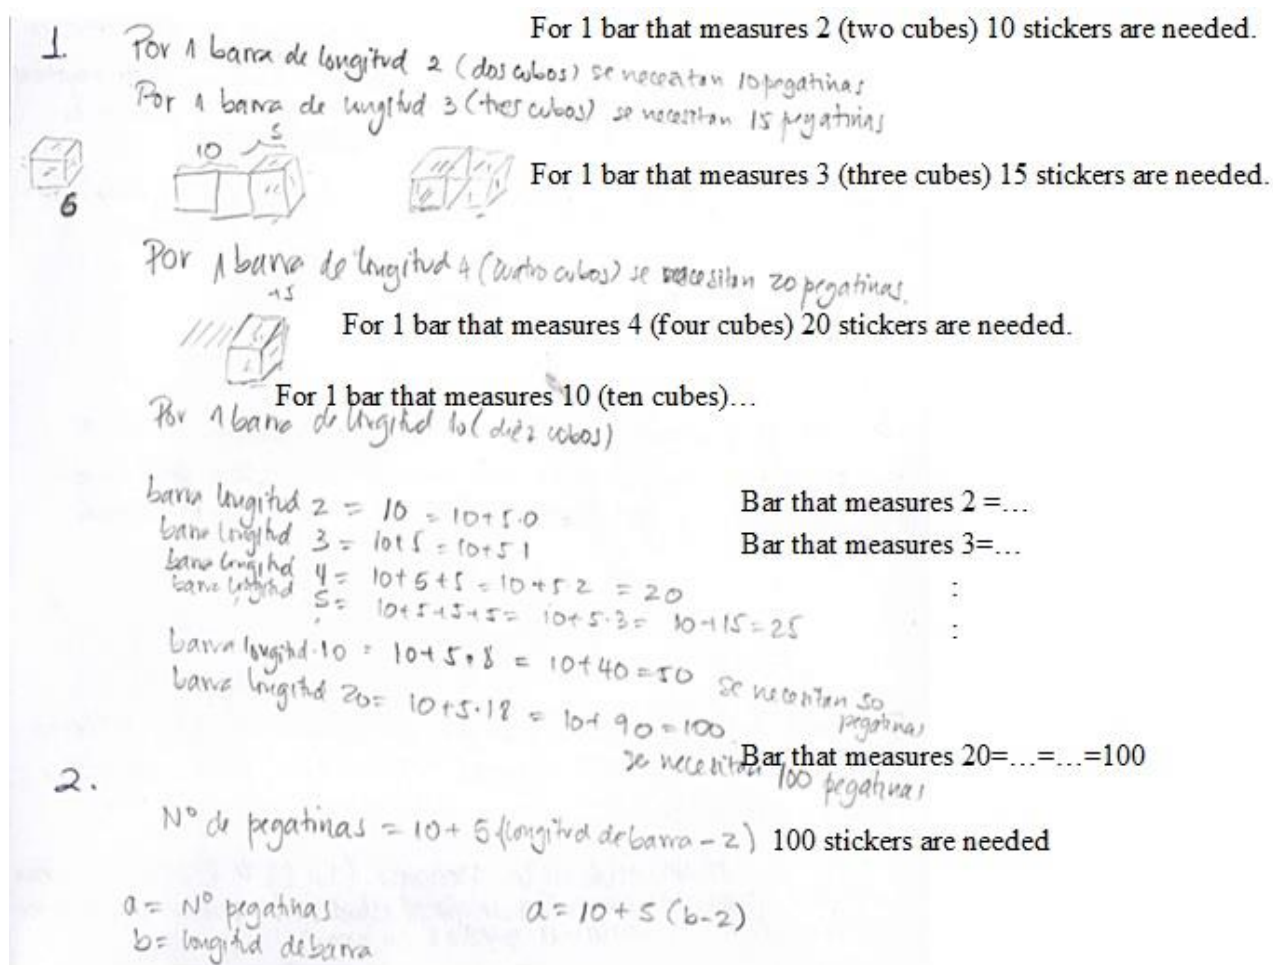 For 1 bar that measures 2 (two cubes) 10 stickers are needed.
1. Por 1 barra de longitud 2 (dos cubos) se necesitan 10 pegatinas
Por 1 barra de longitud 3 (tres cubos) se necesitan 15 pegatinas
10 5
For 1 bar that measures 3 (three cubes) 15 stickers are needed.
6
Por 1 barra de longitud 4 (cuatro cubos) se necesitan 20 pegatinas.
+5
For 1 bar that measures 4 (four cubes) 20 stickers are needed.
For 1 bar that measures 10 (ten cubes)…
Por 1 barra de longitud 10 (diez cubos)
barra longitud 2 = 10 = 10+5·0
Bar that measures 2 =…
barra longitud 3 = 10+5 = 10+5·1
Bar that measures 3=…
barra longitud 4 = 10+5+5 = 10+5·2 = 20
:
barra longitud 5 = 10+5+5+5 = 10+5·3 = 10+15=25
:
barra longitud 10 = 10+5·8 = 10+40=50 se necesitan 50 pegatinas
barra longitud 20= 10+5·18 = 10+90=100
se necesitan 100 pegatinas
Bar that measures 20=…=…=100
2.
Nº de pegatinas = 10+ 5(longitud de barra - 2)
100 stickers are needed
a = Nº pegatinas a = 10+5 (b-2)
b= longitud de barra